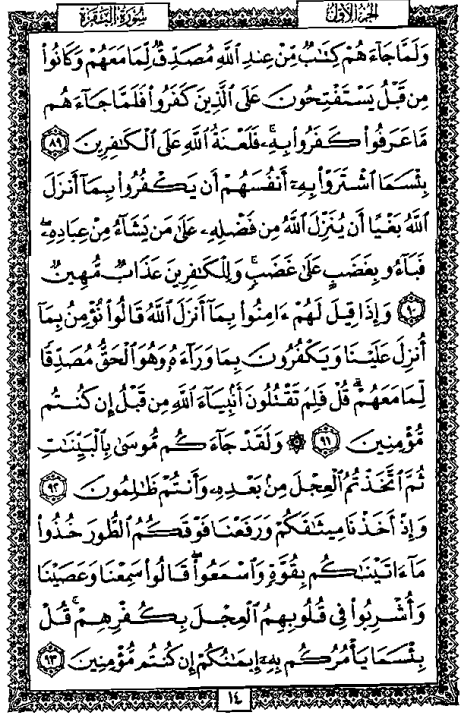 سُورَةُ البَقَرَةِ
الجُزْءُ الأَوَّلُ
وَلَمَّا جَآءَهُمْ كِتَٰبٌ مِّنْ عِندِ ٱللَّهِ مُصَدِّقٌ لِّمَا مَعَهُمْ وَكَانُوا۟
مِن قَبْلُ يَسْتَفْتِحُونَ عَلَى ٱلَّذِينَ كَفَرُوا۟ فَلَمَّا جَآءَهُم
مَّا عَرَفُوا۟ كَفَرُوا۟ بِهِۦۚ فَلَعْنَةُ ٱللَّهِ عَلَى ٱلْكَٰفِرِينَ ٨٩
بِئْسَمَا ٱشْتَرَوْا۟ بِهِۦٓ أَنفُسَهُمْ أَن يَكْفُرُوا۟ بِمَآ أَنزَلَ
ٱللَّهُ بَغْيًا أَن يُنَزِّلَ ٱللَّهُ مِن فَضْلِهِۦ عَلَىٰ مَن يَشَآءُ مِنْ عِبَادِهِۦۖ
فَبَآءُو بِغَضَبٍ عَلَىٰ غَضَبٍۚ وَلِلْكَٰفِرِينَ عَذَابٌ مُّهِينٌ
٩٠ وَإِذَا قِيلَ لَهُمْ ءَامِنُوا۟ بِمَآ أَنزَلَ ٱللَّهُ قَالُوا۟ نُؤْمِنُ بِمَآ
أُنزِلَ عَلَيْنَا وَيَكْفُرُونَ بِمَا وَرَآءَهُۥ وَهُوَ ٱلْحَقُّ مُصَدِّقًا
لِّمَا مَعَهُمْۗ قُلْ فَلِمَ تَقْتُلُونَ أَنۢبِيَآءَ ٱللَّهِ مِن قَبْلُ إِن كُنتُم
مُّؤْمِنِينَ ٩١ ۞ وَلَقَدْ جَآءَكُم مُّوسَىٰ بِٱلْبَيِّنَٰتِ
ثُمَّ ٱتَّخَذْتُمُ ٱلْعِجْلَ مِنۢ بَعْدِهِۦ وَأَنتُمْ ظَٰلِمُونَ ٩٢
وَإِذْ أَخَذْنَا مِيثَٰقَكُمْ وَرَفَعْنَا فَوْقَكُمُ ٱلطُّورَ خُذُوا۟
مَآ ءَاتَيْنَٰكُم بِقُوَّةٍ وَٱسْمَعُوا۟ۖ قَالُوا۟ سَمِعْنَا وَعَصَيْنَا
وَأُشْرِبُوا۟ فِى قُلُوبِهِمُ ٱلْعِجْلَ بِكُفْرِهِمْۚ قُلْ
بِئْسَمَا يَأْمُرُكُم بِهِۦٓ إِيمَٰنُكُمْ إِن كُنتُم مُّؤْمِنِينَ ٩٣
١٤